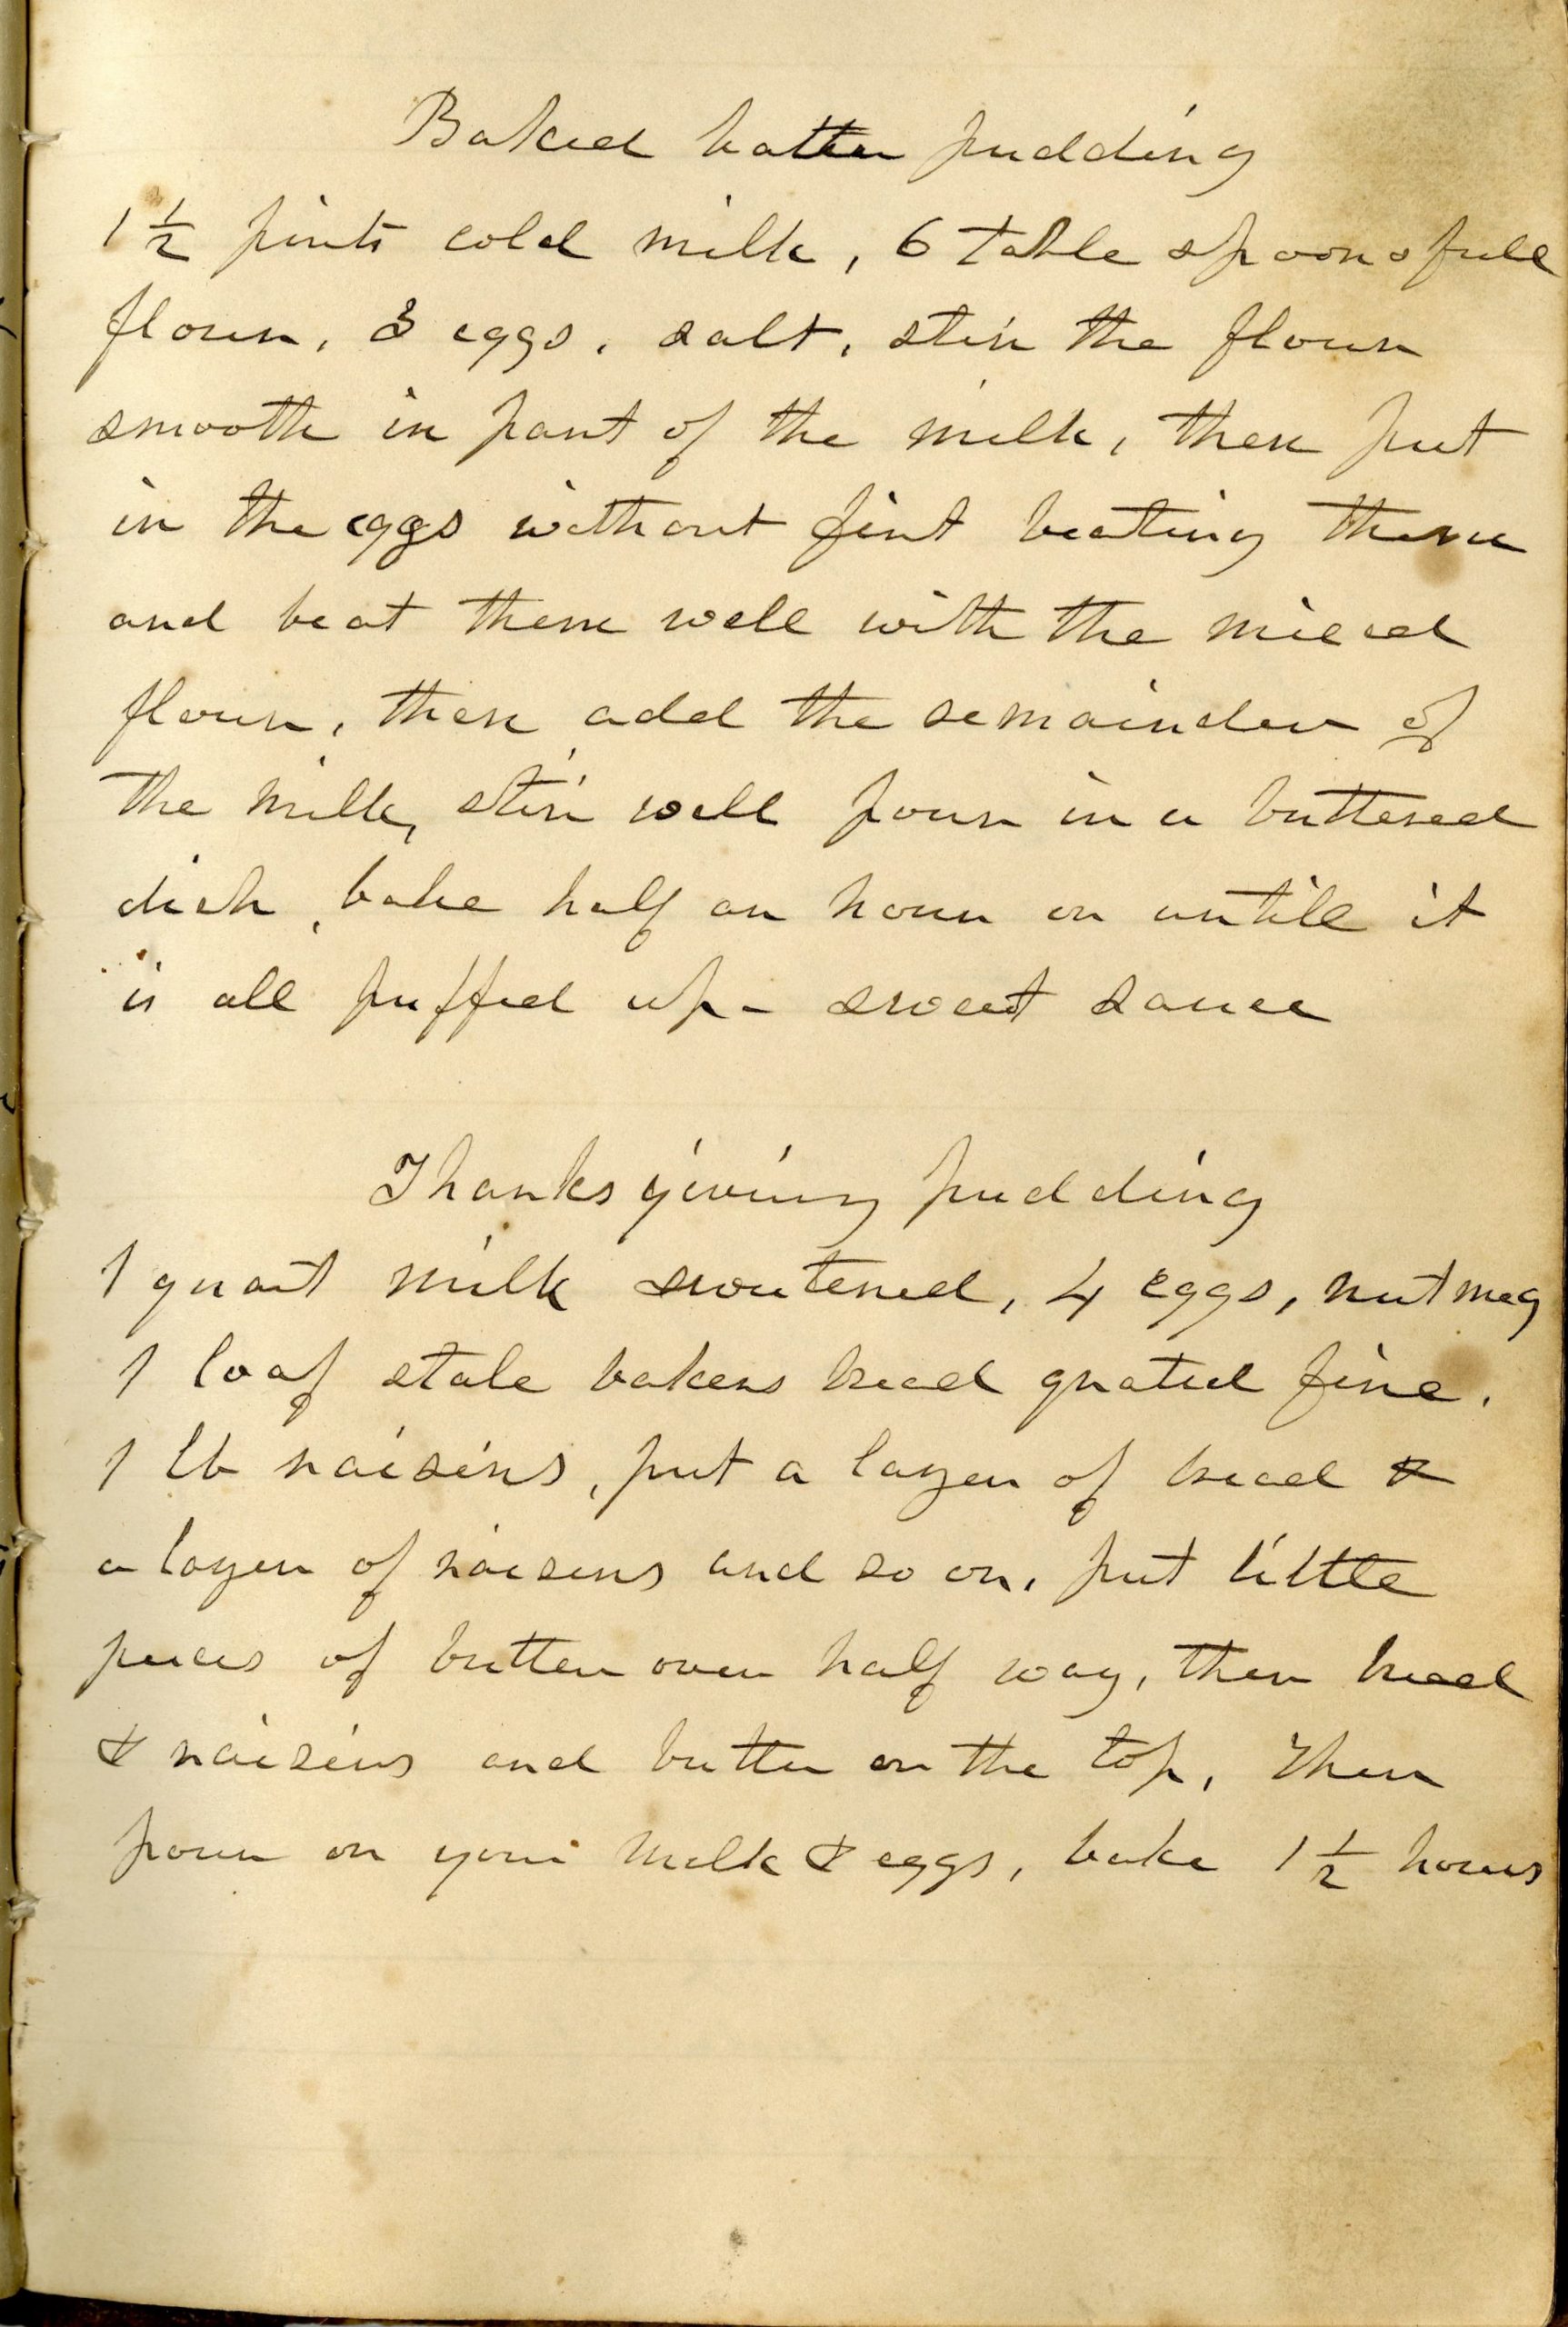 Baked batter pudding
1 1/2 pints cold milk, 6 table spoonsfull
flour, 3 eggs, salt, stir the flour
smooth in part of the milk, then put
in the eggs without first beating them
and beat them well with the mixed
flour, then add the remainder of
the milk, stir well pour in a buttered
dish, bake half an hour or untill it
is all puffed up - sweet sauce
Thanksgiving pudding
1 quart milk sweetened, 4 eggs, nutmeg
1 loaf stale bakers bread grated fine.
1 lb raisins, put a layer of bread &
a layer of raisins and so on, put little
pieces of butter over half way, then bread
& raisins and butter on the top, then
pour on your milk & eggs, bake 1 1/2 hours